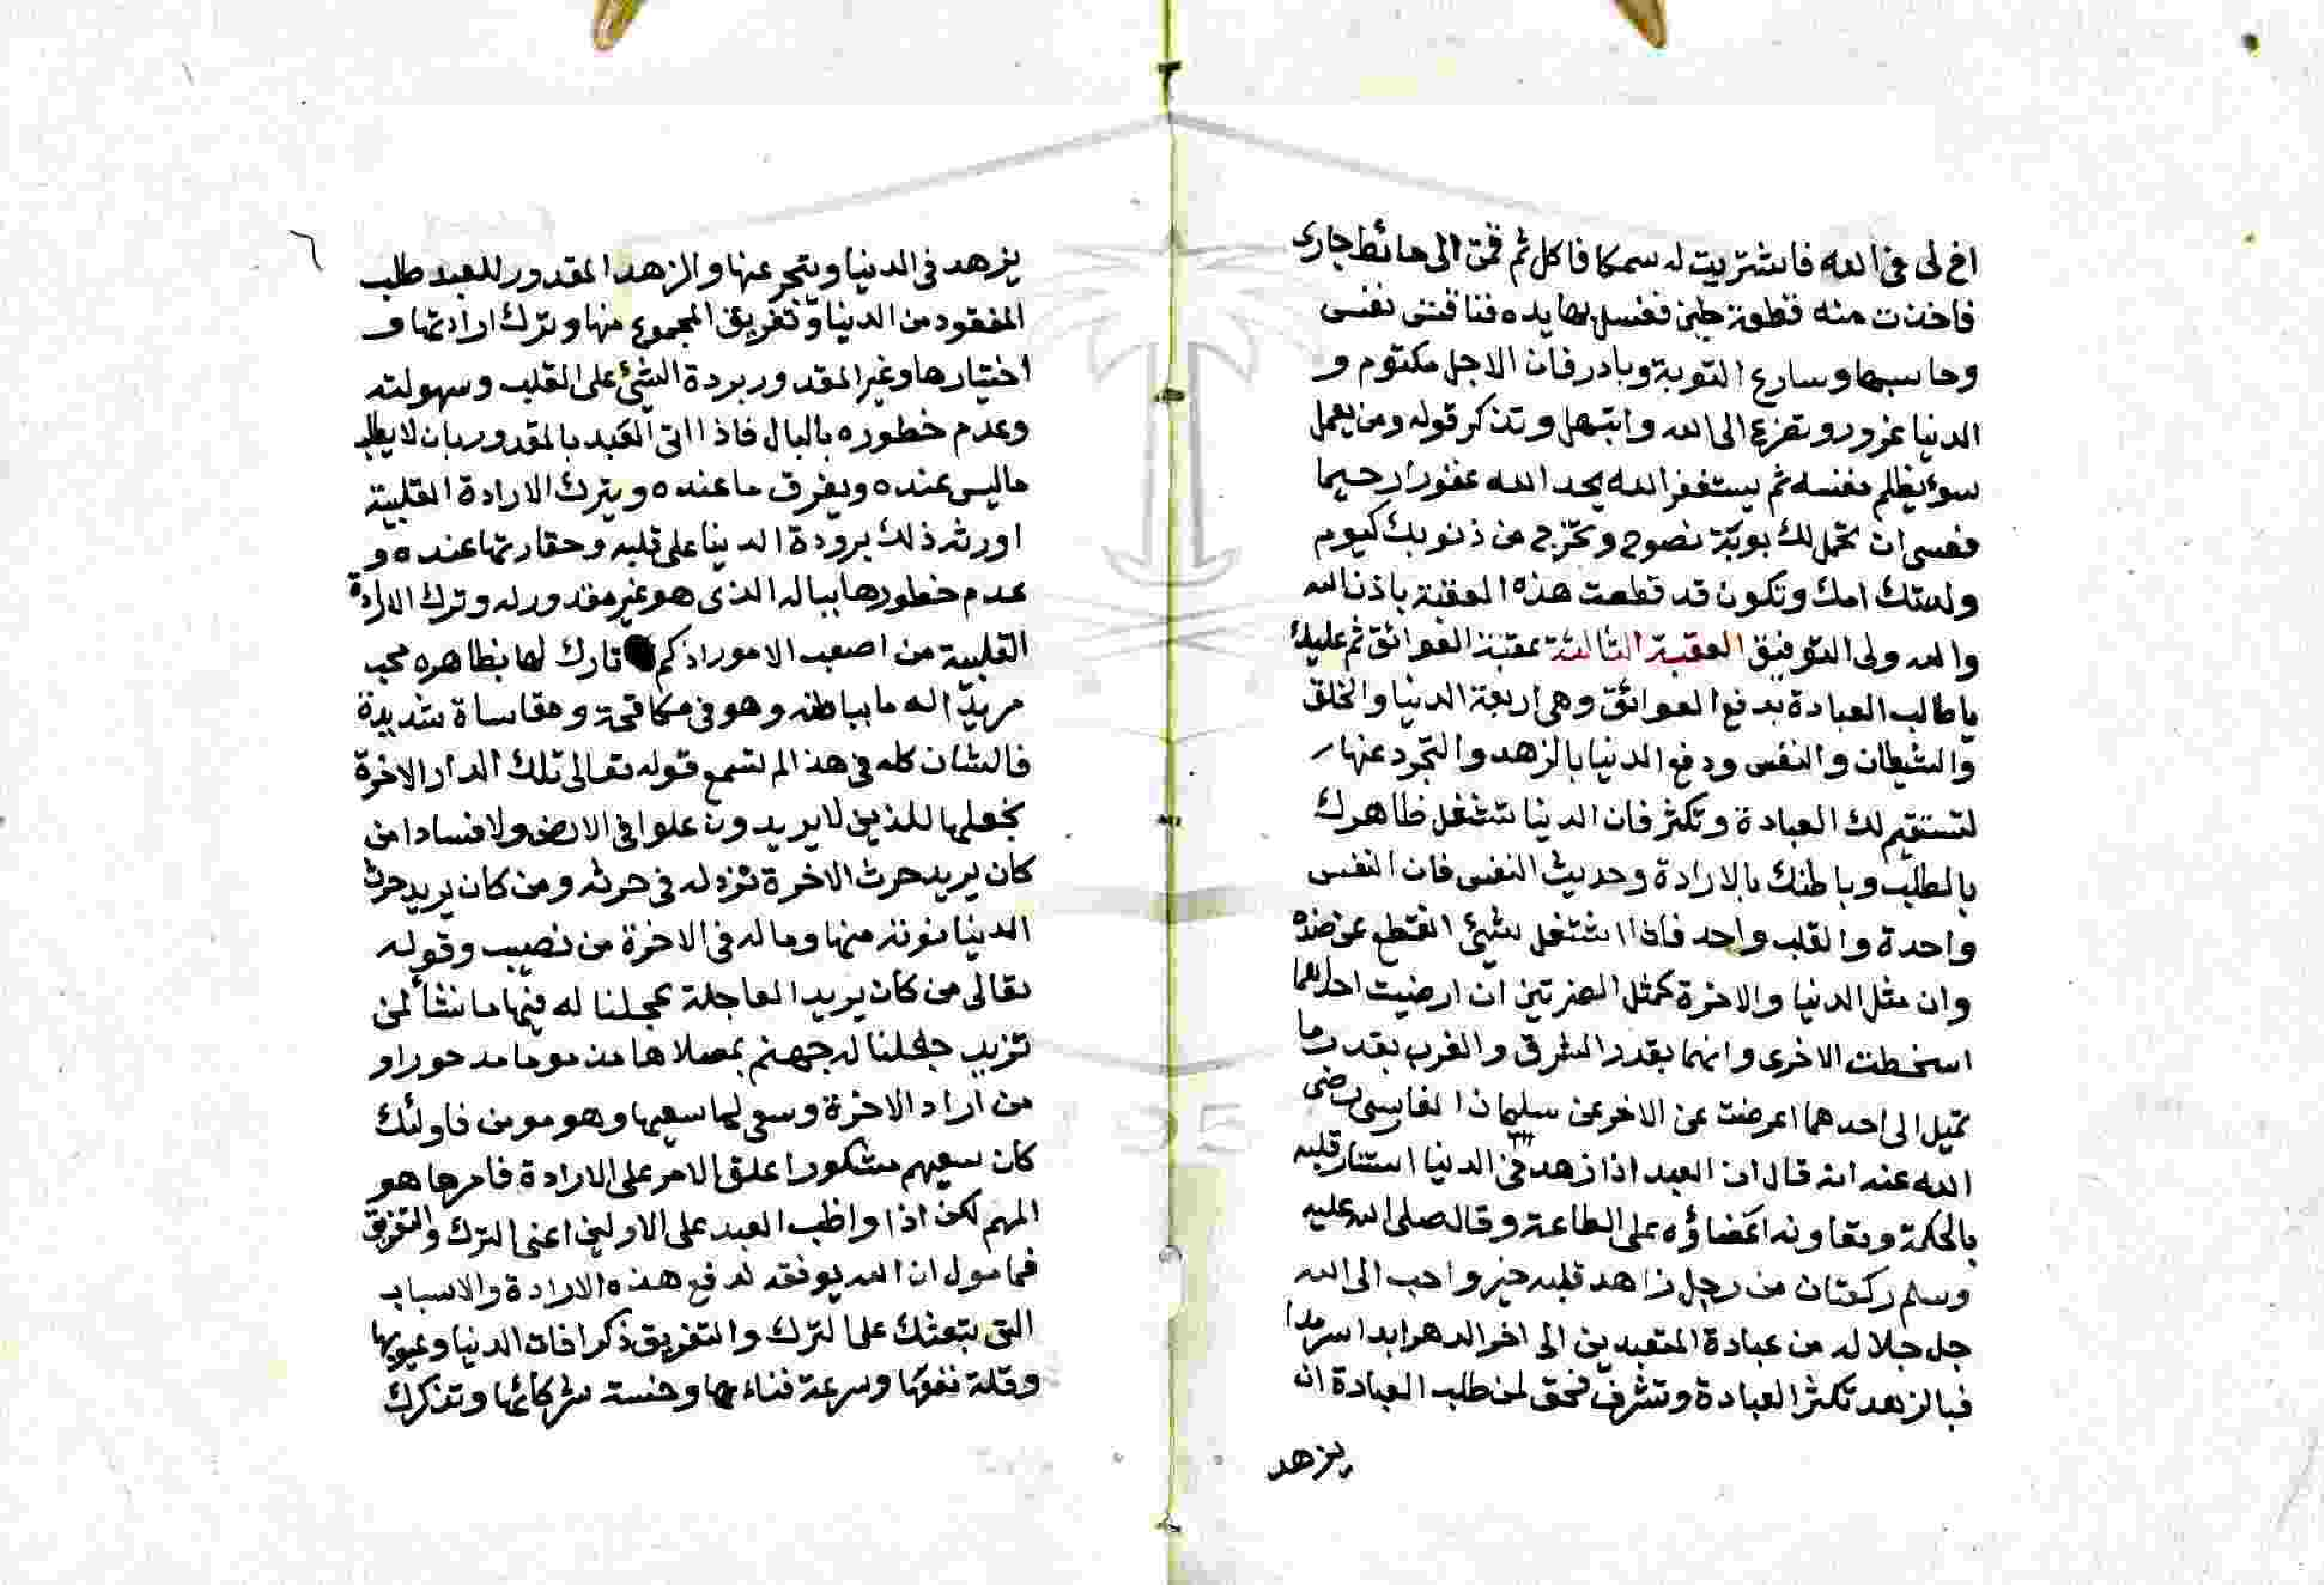 اخ لى فى الله فاشتريت له سمكا فاكل ثم قمت الى حائط جارى
فاخذت منه قطعة طين فغسل بها يده فناقشى نفسى
وحاسبها وسارع التوبة وبادر فان الاجل مكتوم و
الدنيا غرور وتضرع الى الله وابتهل وتذكر قوله ومن يعمل
سوء يظلم نفسه ثم يستغفر الله يجد الله غفورا رحيما
فعسى ان لك توبة نصوح وتخرج من ذنوبك كيوم
ولدتك امك وتكون قد قطعت هذه العقبة باذن الله
والله ولى التوفيق العقبة الثالثة عقبة العوائق ثم عليك
يا طالب العبادة بدفع العوائق وهى اربعة الدنيا والخلق
والشيطان والنفس ودفع الدنيا بالزهد والتجرد عنها
لتستقيم لك العبادة وتكثر فان الدنيا تشغل ظاهرك
بالطلب وباطنك بالارادة وحديث النفس فان النفس
واحدة والقلب واحد فاذا اشتغل بشئ انقطع عن ضده
وان مثل الدنيا والاخرة كمثل الضرتين ان ارضيت احداهما
اسخطت الاخرى وانهما بقدر المشرق والمغرب بقدر ما
تميل الى احدهما اعرضت عن الاخر عن سليمان الفارسى رضى
الله عنه انه قال ان العبد اذا زهد فى الدنيا استنار قلبه
بالحكمة وتعاونه اعضاؤه على الطاعة وقال صلى الله عليه
وسلم ركعتان من رجل زاهد قلبه خير واحب الى الله
جل جلاله من عبادة المتعبدين الى اخر الدهر ابدا سرمدا
فبالزهد تكثر العبادة وتشرف فحق لمن طلب العبادة ان
يزهد
٦
يزهد فى الدنيا ويتجر عنها والزهد المقدور للعبد طلب
المفقود من الدنيا وتفريق المجموع منها وترك ارادتها و
اختيارها وغير المقدور بردة الشئ على القلب وسهولته
وعدم خطوره بالبال فاذا اتى العبد بالمقدور بان لا يطلب
ماليس عنده ويفرق ما عنده ويترك الارادة القلبية
اورثه ذلك برودة الدنيا على قلبه وحقارتها عنده و
عدم خطورها بباله الذى هو غير مقدور له وترك الارادة
القلبية من اصعب الامور اذ كم تارك لها بظاهره محب
مريد اله ما بباطنه وهو فى مكافحة ومقاساة شديدة
فالشان كله فى هذا الم تسمع قوله تعالى تلك الدار الاخرة
نجعلها للذين لا يريدون علوا فى الارض ولا فسادا من
كان يريد حرث الاخرة نزد له فى حرثه ومن كان يريد حرث
الدنيا نوته منها وماله فى الاخرة من نصيب وقوله
تعالى من كان يريد العاجلة عجلنا له فيها ما نشأ لمن
نريد جعلنا له جهنم يصلاها مذموما مدحورا و
من اراد الاخرة وسعى لها سعيها وهو مومن فاولئك
كان سعيهم مشكورا علق الامر على الارادة فامرها هو
المهم لكن اذا واظب العبد على الاولين اعنى الترك والتفريق
فمامول ان الله يوفقه لدفع هذه الارادة والاسباب
التى تبعثك على الترك والتفريق ذكر افات الدنيا وعيوبها
وقلة نفعها وسرعة فناءها وخسة شركائها وتذكرك